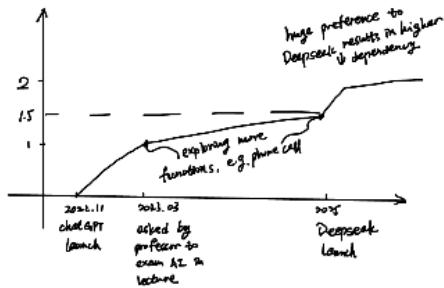 huge preference to
Deepseek results in higher
dependency
2
1.5
1
exploring more
functions, e.g. phone call
2022.11
chatGPT
launch
2023.03
asked by
professor to
exam AI in
lecture
2025
Deepseek
launch